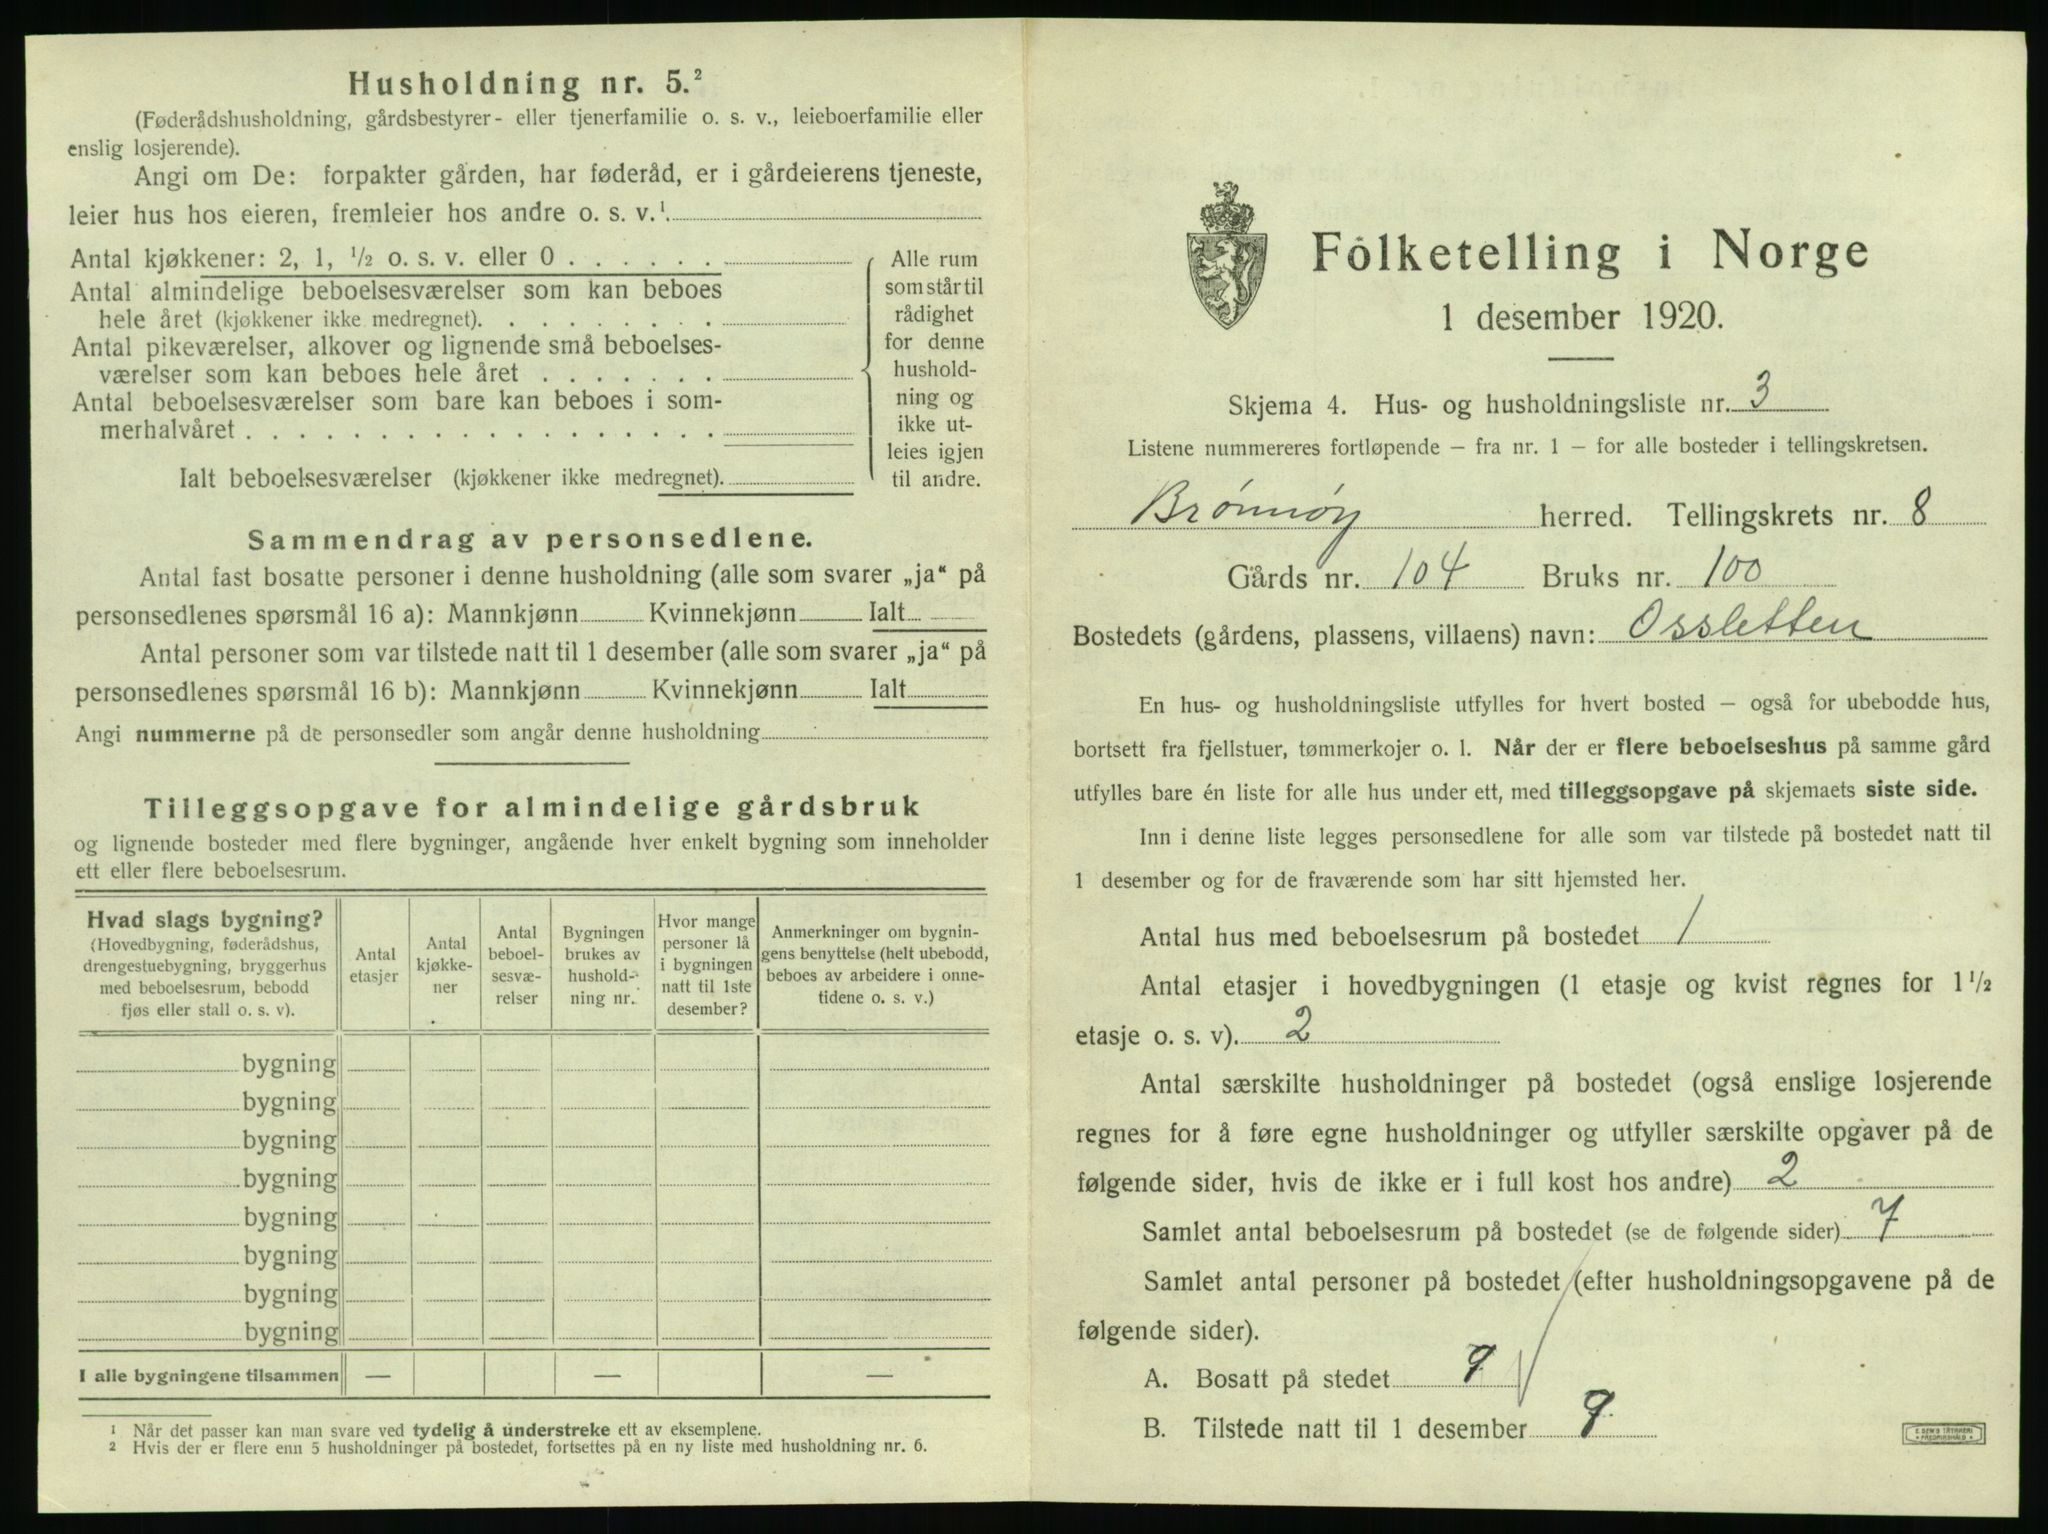 Husholdning nr. 5.²
(Føderådshusholdning, gårdsbestyrer- eller tjenerfamilie o. s. v., leieboerfamilie eller
enslig losjerende).
Angi om De: forpakter gården, har føderåd, er i gårdeierens tjeneste,
leier hus hos eieren, fremleier hos andre o. s. v.¹.
Antal kjøkkener: 2, 1, ½ o. s. v. eller 0 . . . . . .
Antal almindelige beboelsesværelser som kan beboes
hele året (kjøkkener ikke medregnet). . . . . . . . .
Antal pikeværelser, alkover og lignende små beboelses-
værelser som kan beboes hele året . . . . . . .
Antal beboelsesværelser som bare kan beboes i som-
merhalvåret . . . . . . . . . . . . . . . . . .
Ialt beboelsesværelser (kjøkkener ikke medregnet).
Alle rum
som står til
rådighet
for denne
hushold-
ning og
ikke ut-
leies igjen
til andre.
Sammendrag av personsedlene.
Antal fast bosatte personer i denne husholdning (alle som svarer „ja“ på
personsedlenes spørsmål 16 a): Mannkjønn Kvinnekjønn Ialt
Antal personer som var tilstede natt til 1 desember (alle som svarer „ja“ på
personsedlenes spørsmål 16 b): Mannkjønn Kvinnekjønn Ialt
Angi nummerne på de personsedler som angår denne husholdning
Tilleggsopgave for almindelige gårdsbruk
og lignende bosteder med flere bygninger, angående hver enkelt bygning som inneholder
ett eller flere beboelsesrum.
Hvad slags bygning?
(Hovedbygning, føderådshus,
drengestuebygning, bryggerhus
med beboelsesrum, bebodd
fjøs eller stall o. s. v).
Antal
etasjer
Antal
kjøkke-
ner
Antal
beboel-
sesvæ-
relser
Bygningen
brukes av
hushold-
ning nr.
Hvor mange
personer lå
i bygningen
natt til 1ste
desember?
Anmerkninger om bygnin-
gens benyttelse (helt ubebodd,
beboes av arbeidere i onne-
tidene o. s. v.)
bygning
bygning
bygning
bygning
bygning
bygning
bygning
bygning
I alle bygningene tilsammen — — —
¹ Når det passer kan man svare ved tydelig å understreke ett av eksemplene.
² Hvis der er flere enn 5 husholdninger på bostedet, fortsettes på en ny liste med husholdning nr. 6.
Folketelling i Norge
1 desember 1920.
Skjema 4. Hus- og husholdningsliste nr. 3
Listene nummereres fortløpende – fra nr. 1 – for alle bosteder i tellingskretsen.
Brønnøy herred. Tellingskrets nr. 8
Gårds nr. 104 Bruks nr. 100
Bostedets (gårdens, plassens, villaens) navn: Ossletten
En hus- og husholdningsliste utfylles for hvert bosted – også for ubebodde hus,
bortsett fra fjellstuer, tømmerkojer o. l. Når der er flere beboelseshus på samme gård
utfylles bare én liste for alle hus under ett, med tilleggsopgave på skjemaets siste side.
Inn i denne liste legges personsedlene for alle som var tilstede på bostedet natt til
1 desember og for de fraværende som har sitt hjemsted her.
Antal hus med beboelsesrum på bostedet 1
Antal etasjer i hovedbygningen (1 etasje og kvist regnes for 1½
etasje o. s. v). 2
Antal særskilte husholdninger på bostedet (også enslige losjerende
regnes for å føre egne husholdninger og utfyller særskilte opgaver på de
følgende sider, hvis de ikke er i full kost hos andre) 2
Samlet antal beboelsesrum på bostedet (se de følgende sider) 7
Samlet antal personer på bostedet (efter husholdningsopgavene på de
følgende sider).
A. Bosatt på stedet 9
B. Tilstede natt til 1 desember 9